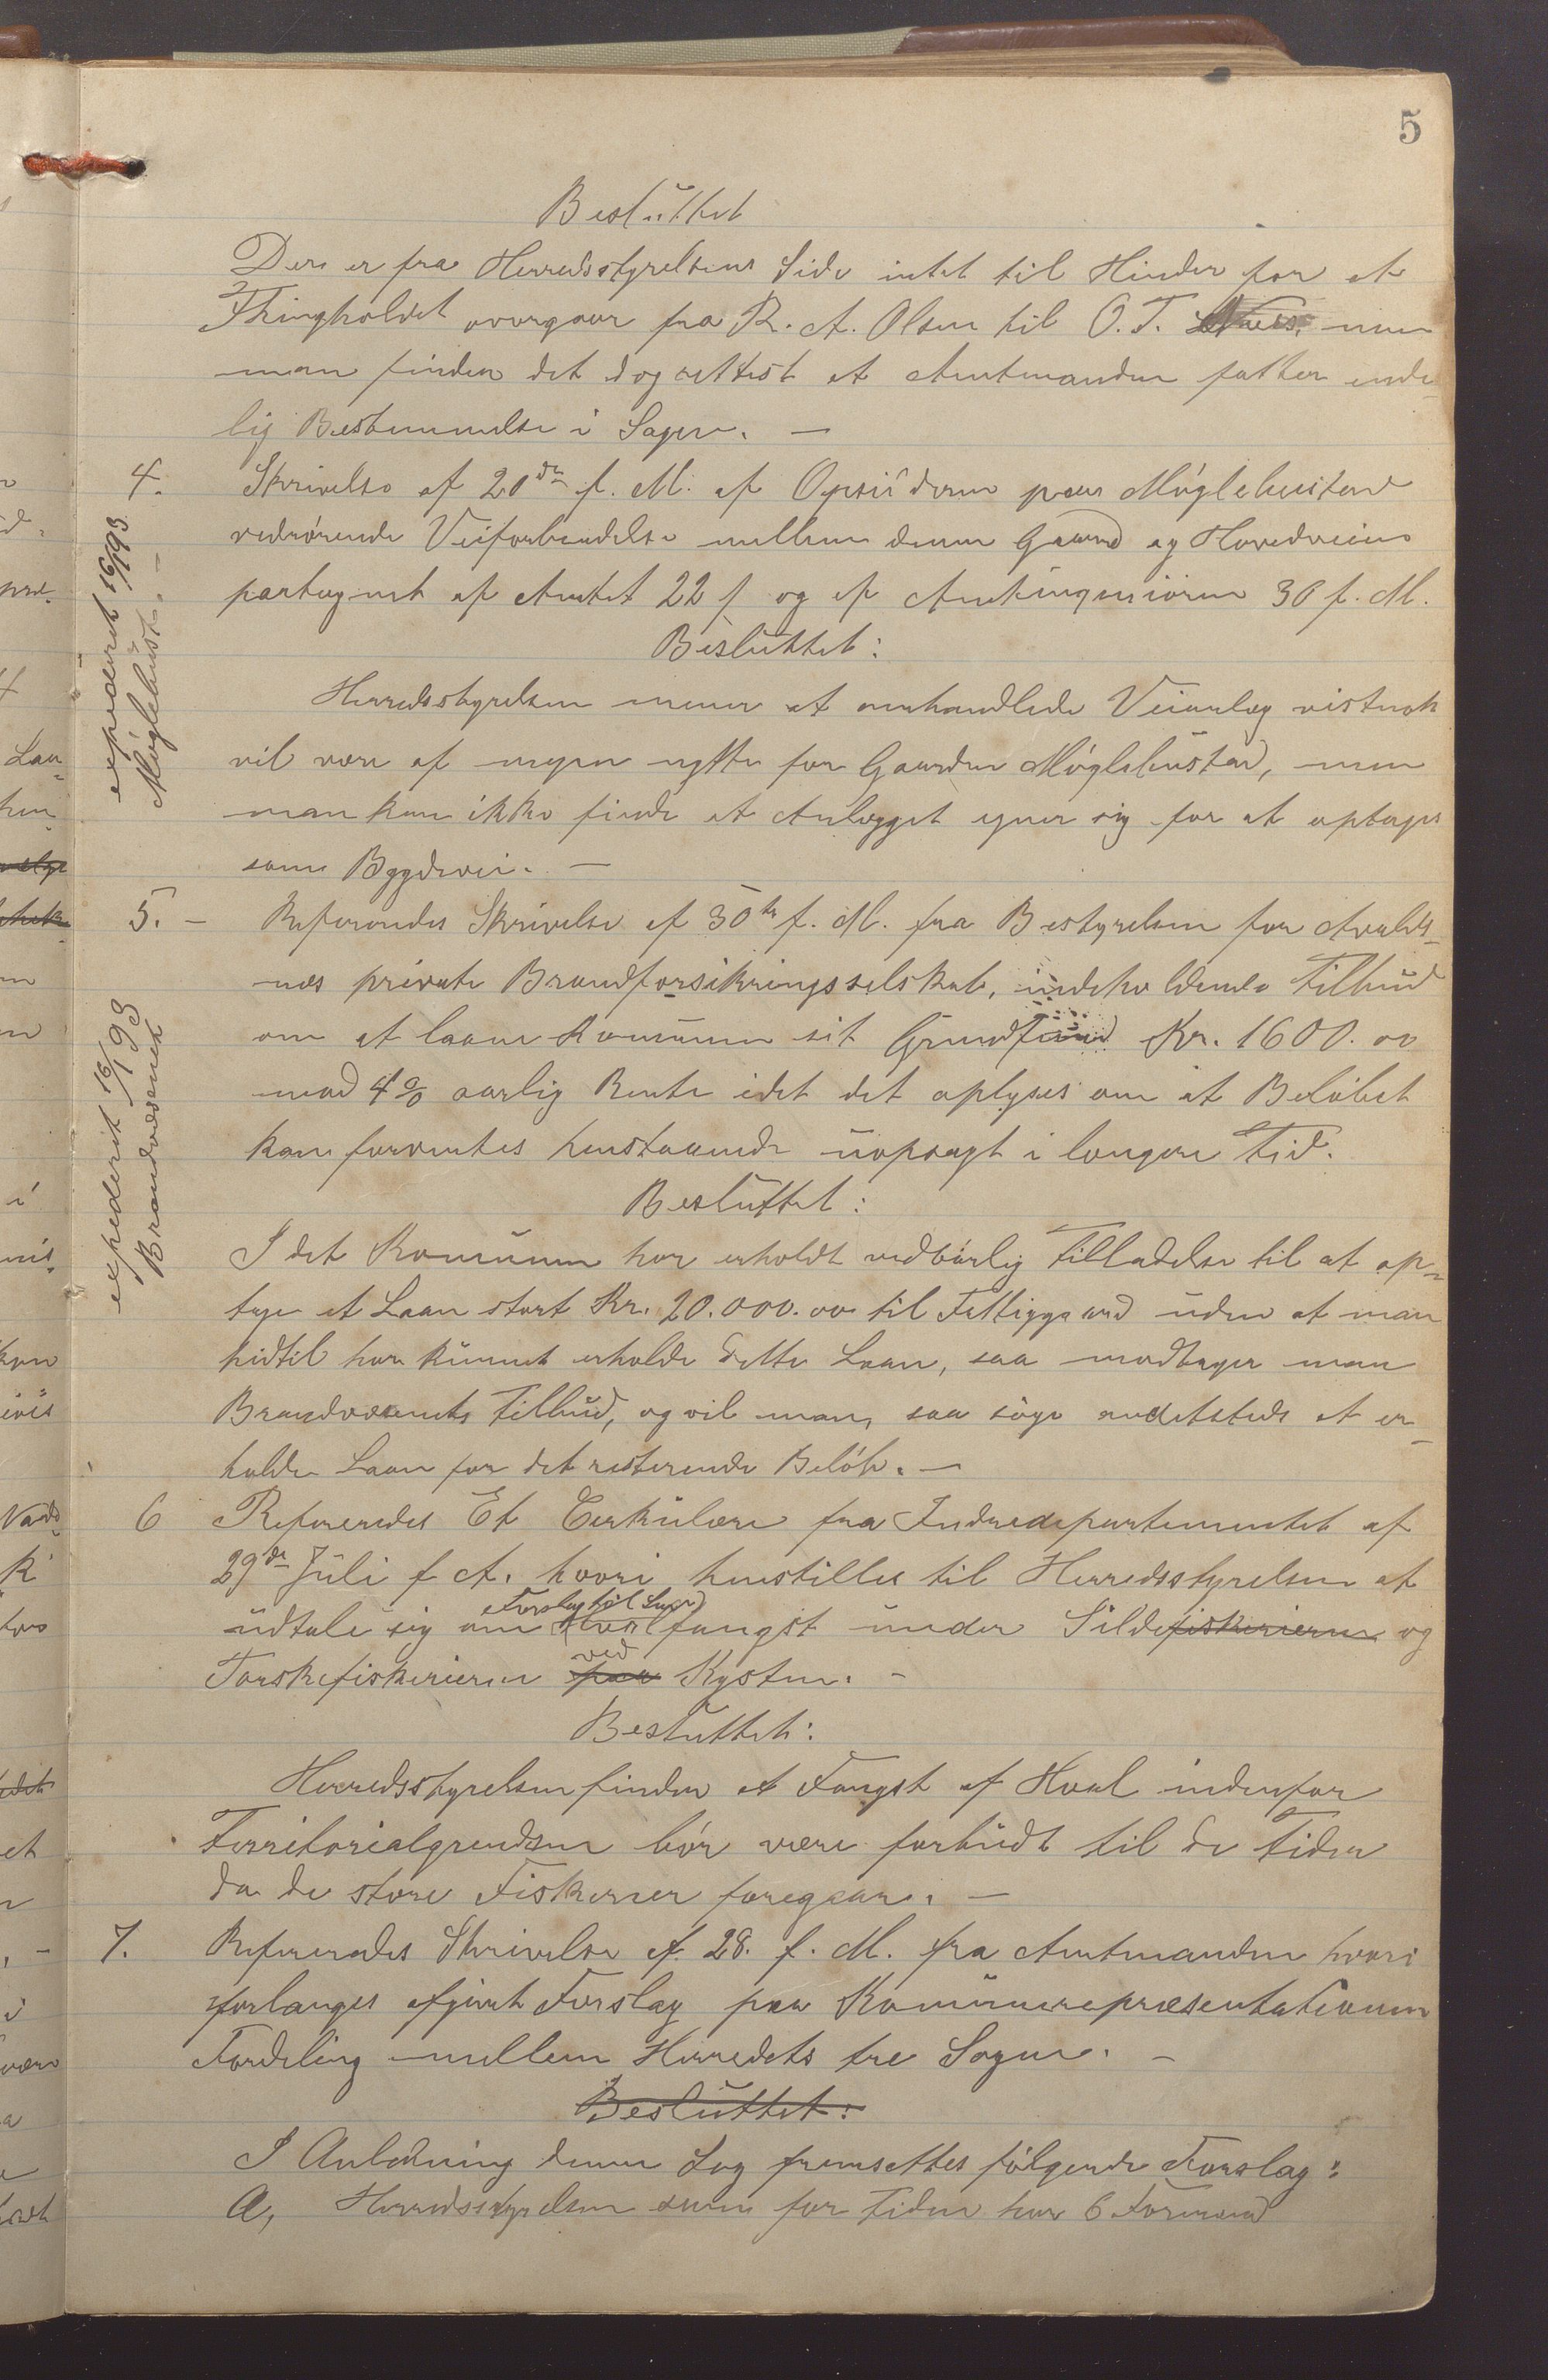 5
Besluttet
Der er fra Herredsstyrelsens Side intet til Hinder for at
Thingholdet overgaar fra R. A. Olsen til O. T. men
man finder det dog rettest at Amtmanden fatter ende-
lig Bestemmelse i Sagen. —
4. Skrivelse af 20de f. M. af Opsidderne paa Møglehustad
vedrørende Veiforbindelse mellem denne Gaard og Hovedveien
paategnet af Amtet 22 f og af Amtingeniøren 30 f. M.
Besluttet:
Herredsstyrelsen mener at omhandlede Veianlæg vistnok
vil være af megen nytte for Gaarden Møglehustad, men
man kan ikke finde at Anlægget egner sig for at optages
som Bygdevei. —
expederet 16/1 93
Møglehust. —
5. — Referendes Skrivelse af 30te f. M. fra Bestyrelsen for Avalds-
næs private Brandforsikringsselskab, indeholdende Tilbud
om at laane Komunen sit Grundfond Kr. 1600.00
mod 4% aarlig Rente idet det oplyses om at Beløbet
kan forventes henstaaende uopsagt i længere Tid.
Besluttet:
I det Komunen har erholdt vedbørlig Tilladelse til at op-
tage et Laan stort Kr. 20.000.00 til Fattiggaard uden at man
hidtil har kunnet erholde dette Laan, saa modtager man
Brandvæsenets Tilbud, og vil man saa søge andetsteds at er-
holde Laan for det resterende Beløb. —
expederet 16/1 93
Brandvæsenet
6 Refereredes Et Cirkulære fra Indredepartementet af
29de Juli f A. hvori henstilles til Herredsstyrelsen at
Forslag til Lov)
udtale sig om (Hvalfangst under Sildefiskerierne og
ved
Torskefiskerierne paa Kysten. —
Besluttet:
Herredsstyrelsen finder at Fangst af Hval indenfor
Territorialgrendsen bør være forbudt til de Tider
da de store Fiskerier foregaar. —
7. Refereredes Skrivelse af 28. f. M. fra Amtmanden hvori
forlanges afgivet Forslag paa Komunerepræsentationens
Fordeling mellem Herredets tre Sogne. —
Besluttet:
I Anledning denne Sag fremsættes følgende Forslag:
A, Herredsstyrelsen som for Tiden har 6 Formænd